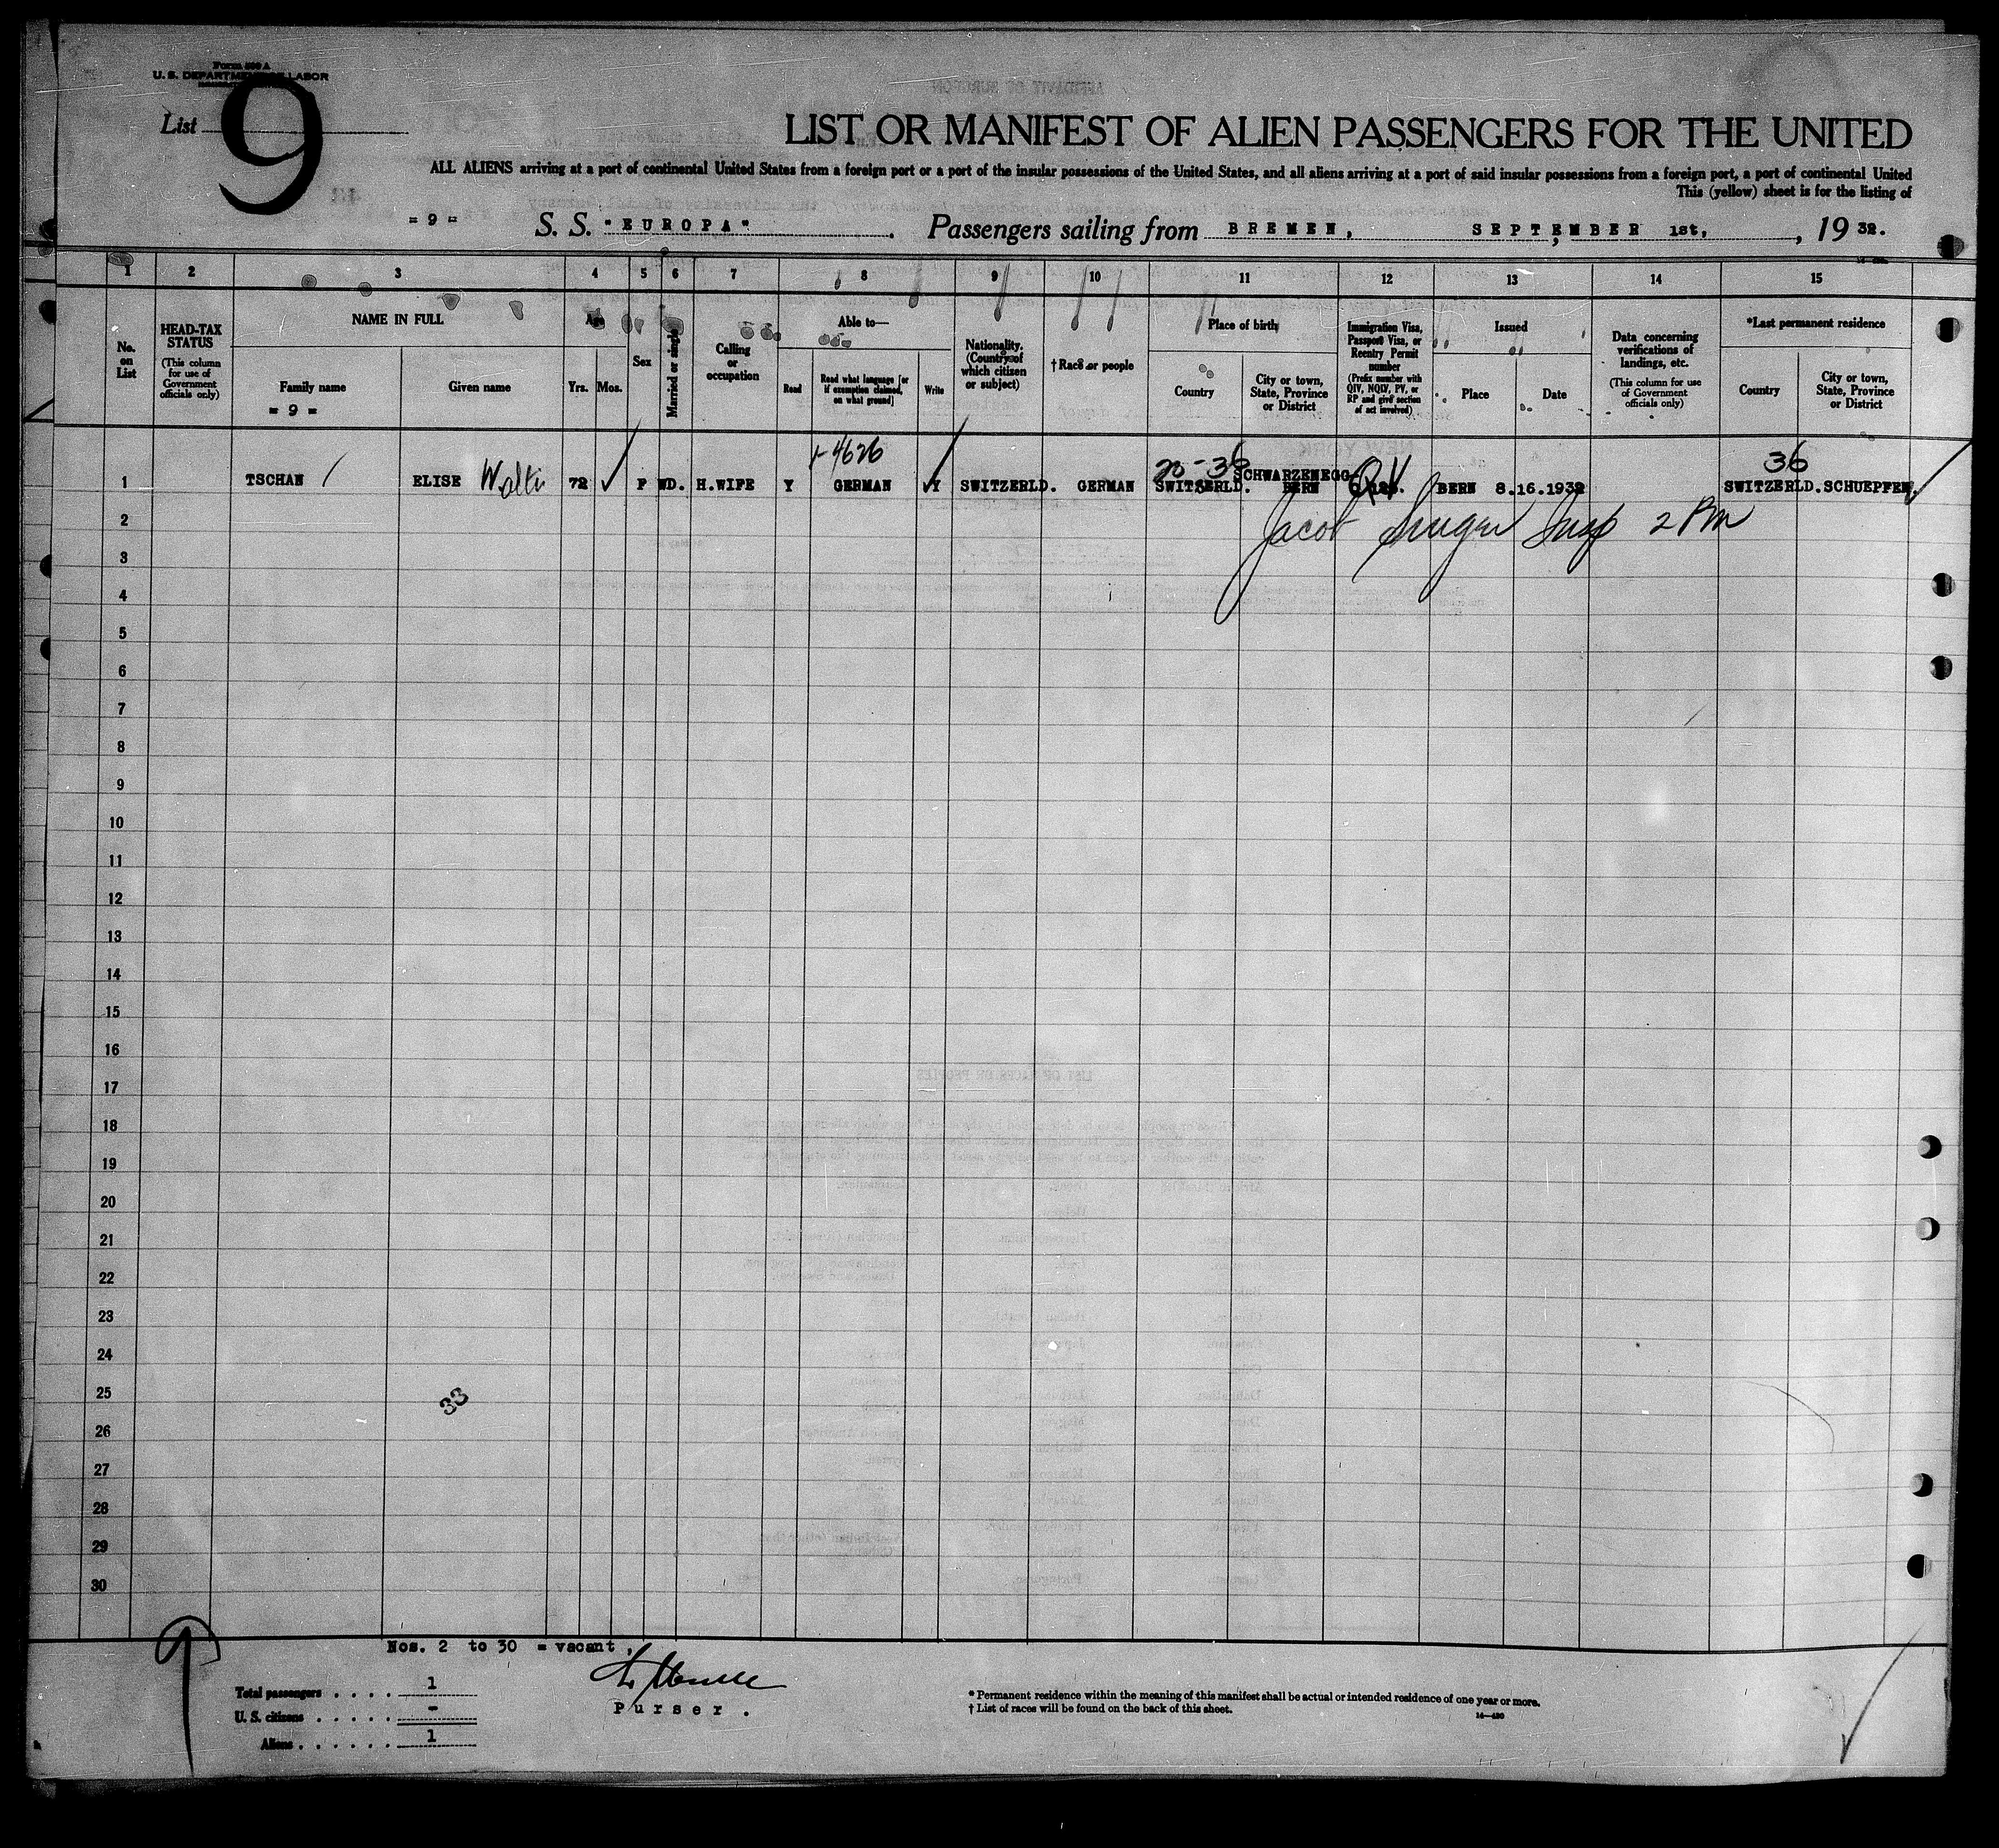 Form 500 A
U. S. DEPARTMENT OF LABOR
List 9
LIST OR MANIFEST OF ALIEN PASSENGERS FOR THE UNITED
ALL ALIENS arriving at a port of continental United States from a foreign port or a port of the insular possessions of the United States, and all aliens arriving at a port of said insular possessions from a foreign port, a port of continental United
This (yellow) sheet is for the listing of
= 9 = S. S. "EUROPA". Passengers sailing from BREMEN, SEPTEMBER 1st, , 19 32.
1 2 3 4 5 6 7 8 9 10 11 12 13 14 15
No. on List
HEAD-TAX STATUS
(This column for use of Government officials only)
NAME IN FULL
Family name
= 9 =
Given name
Age
Yrs. Mos.
Sex
Married or single
Calling or occupation
Able to—
Read
Read what language [or if exemption claimed, on what ground]
Write
Nationality. (Country of which citizen or subject)
† Race or people
Place of birth
Country
City or town, State, Province or District
Immigration Visa, Passport Visa, or Reentry Permit number
(Prefix number with QIV, NQIV, PV, or RP and give section of act involved)
Issued
Place
Date
Data concerning verifications of landings, etc.
(This column for use of Government officials only)
*Last permanent residence
Country
City or town, State, Province or District
4626 36 36
1 TSCHAN ELISE 72 F WD. H.WIFE Y GERMAN Y SWITZERLD. GERMAN SWITZERLD. SCHWARZENEGG BERN QIV BERN 8.16.1932 SWITZERLD. SCHUEPFEN.
Jacob Insp 2 PM
2
3
4
5
6
7
8
9
10
11
12
13
14
15
16
17
18
19
20
21
22
23
24
25
33
26
27
28
29
30
Nos. 2 to 30 = vacant.
Total passengers . . . . 1
U. S. citizens . . . . . -
Aliens . . . . . . 1
Purser.
* Permanent residence within the meaning of this manifest shall be actual or intended residence of one year or more.
† List of races will be found on the back of this sheet.